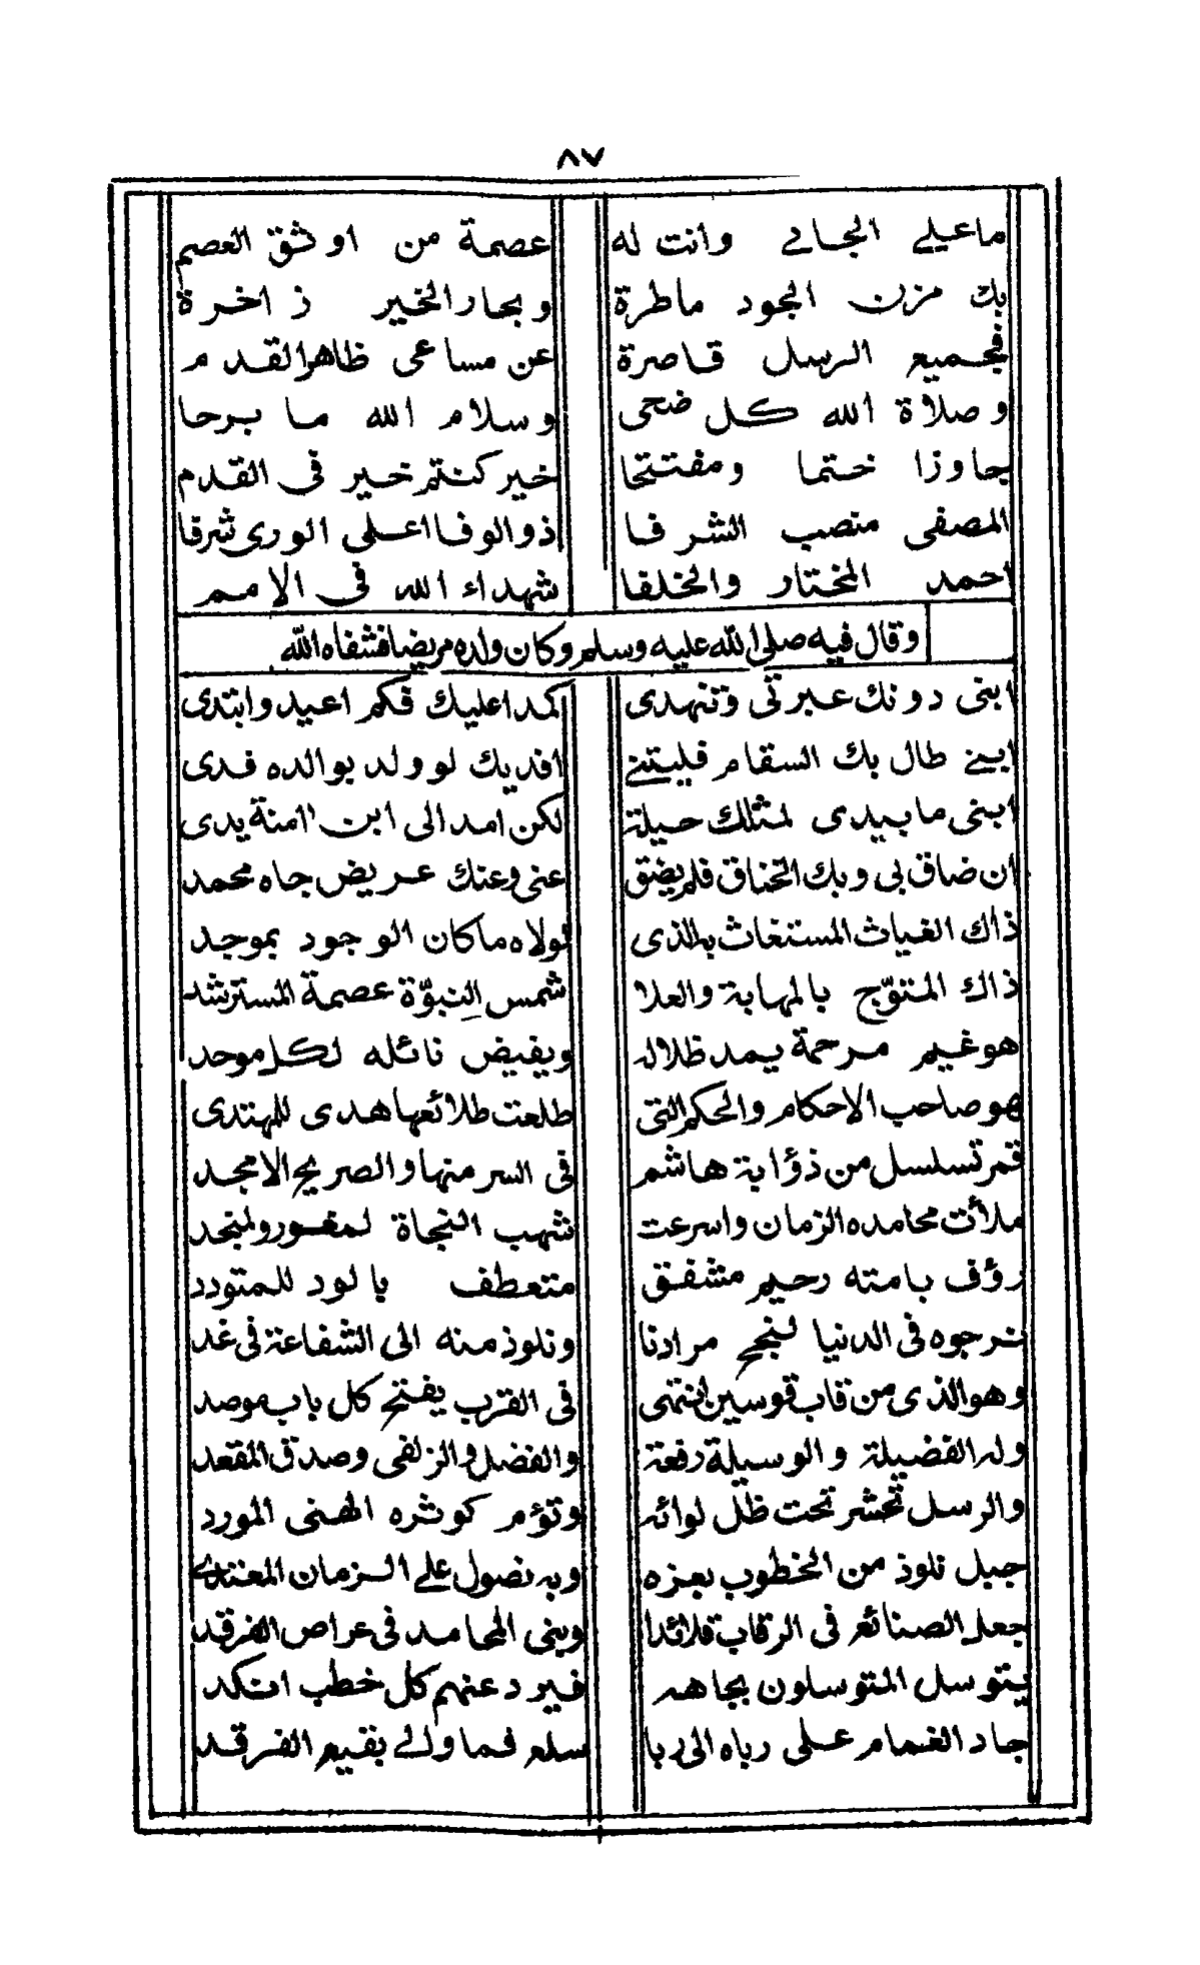 ٨٧
ما على الجانى وانت له عصمة من اوثق العصم
بك مزن الجود ماطرة وبحار الخير ذاخرة
فجميع الرسل قاصرة عن مساعى ظاهر القدم
وصلاة الله كل ضحى وسلام الله ما برحا
جاوزا ختما ومفتتحا خير كنتم خير فى القدم
المصفى منصب الشرفا ذو الوفا اعلى الورى شرفا
احمد المختار والخلفا شهداء الله فى الامم
وقال فيه صلى الله عليه وسلم وكان ولده مريضا فشفاه الله
ابنى دونك عبرتى وتنهدى كمدا عليك فكم اعيد وابتدى
ابنى طال بك السقام فليتنى افديك لو ولد بوالده فدى
ابنى ما بيدى لمثلك حيلة لكن امد الى ابن آمنة يدى
ان ضاق بى وبك الخناق فلم يضق عنى وعنك عريض جاه محمد
ذاك الغياث المستغاث به الذى لولاه ما كان الوجود بموجد
ذاك المتوّج بالمهابة والعلا شمس النبوّة عصمة المسترشد
هو غيم مرحمة يمد ظلاله ويفيض نائله لكل موحد
هو صاحب الاحكام والحكم التى طلعت طلائعها هدى للمهتدى
قمر تسلسل من ذؤابة هاشم فى السر منها والصريح الامجد
ملأت محامده الزمان واسرعت شهب النجاة لمغور ولمنجد
رؤف بامته رحيم مشفق متعطف بالود للمتودد
نرجوه فى الدنيا لنجح مرادنا ونلوذ منه الى الشفاعة فى غد
وهو الذى من قاب قوسين انتهى فى القرب يفتح كل باب موصد
وله الفضيلة والوسيلة رفعة والفضل والزلفى وصدق المقعد
والرسل تحشر تحت ظل لوائه وتؤم كوثره الهنى المورد
جبل نلوذ من الخطوب بعزه وبه نصول على الزمان المعتدى
جعل الصنائع فى الرقاب قلائدا وبنى المحامد فى عراص الفرقد
يتوسل المتوسلون بجاهه فيرد عنهم كل خطب انكد
جاد الغمام على رباه الى ربا سلع فما والى بقيع الفرقد